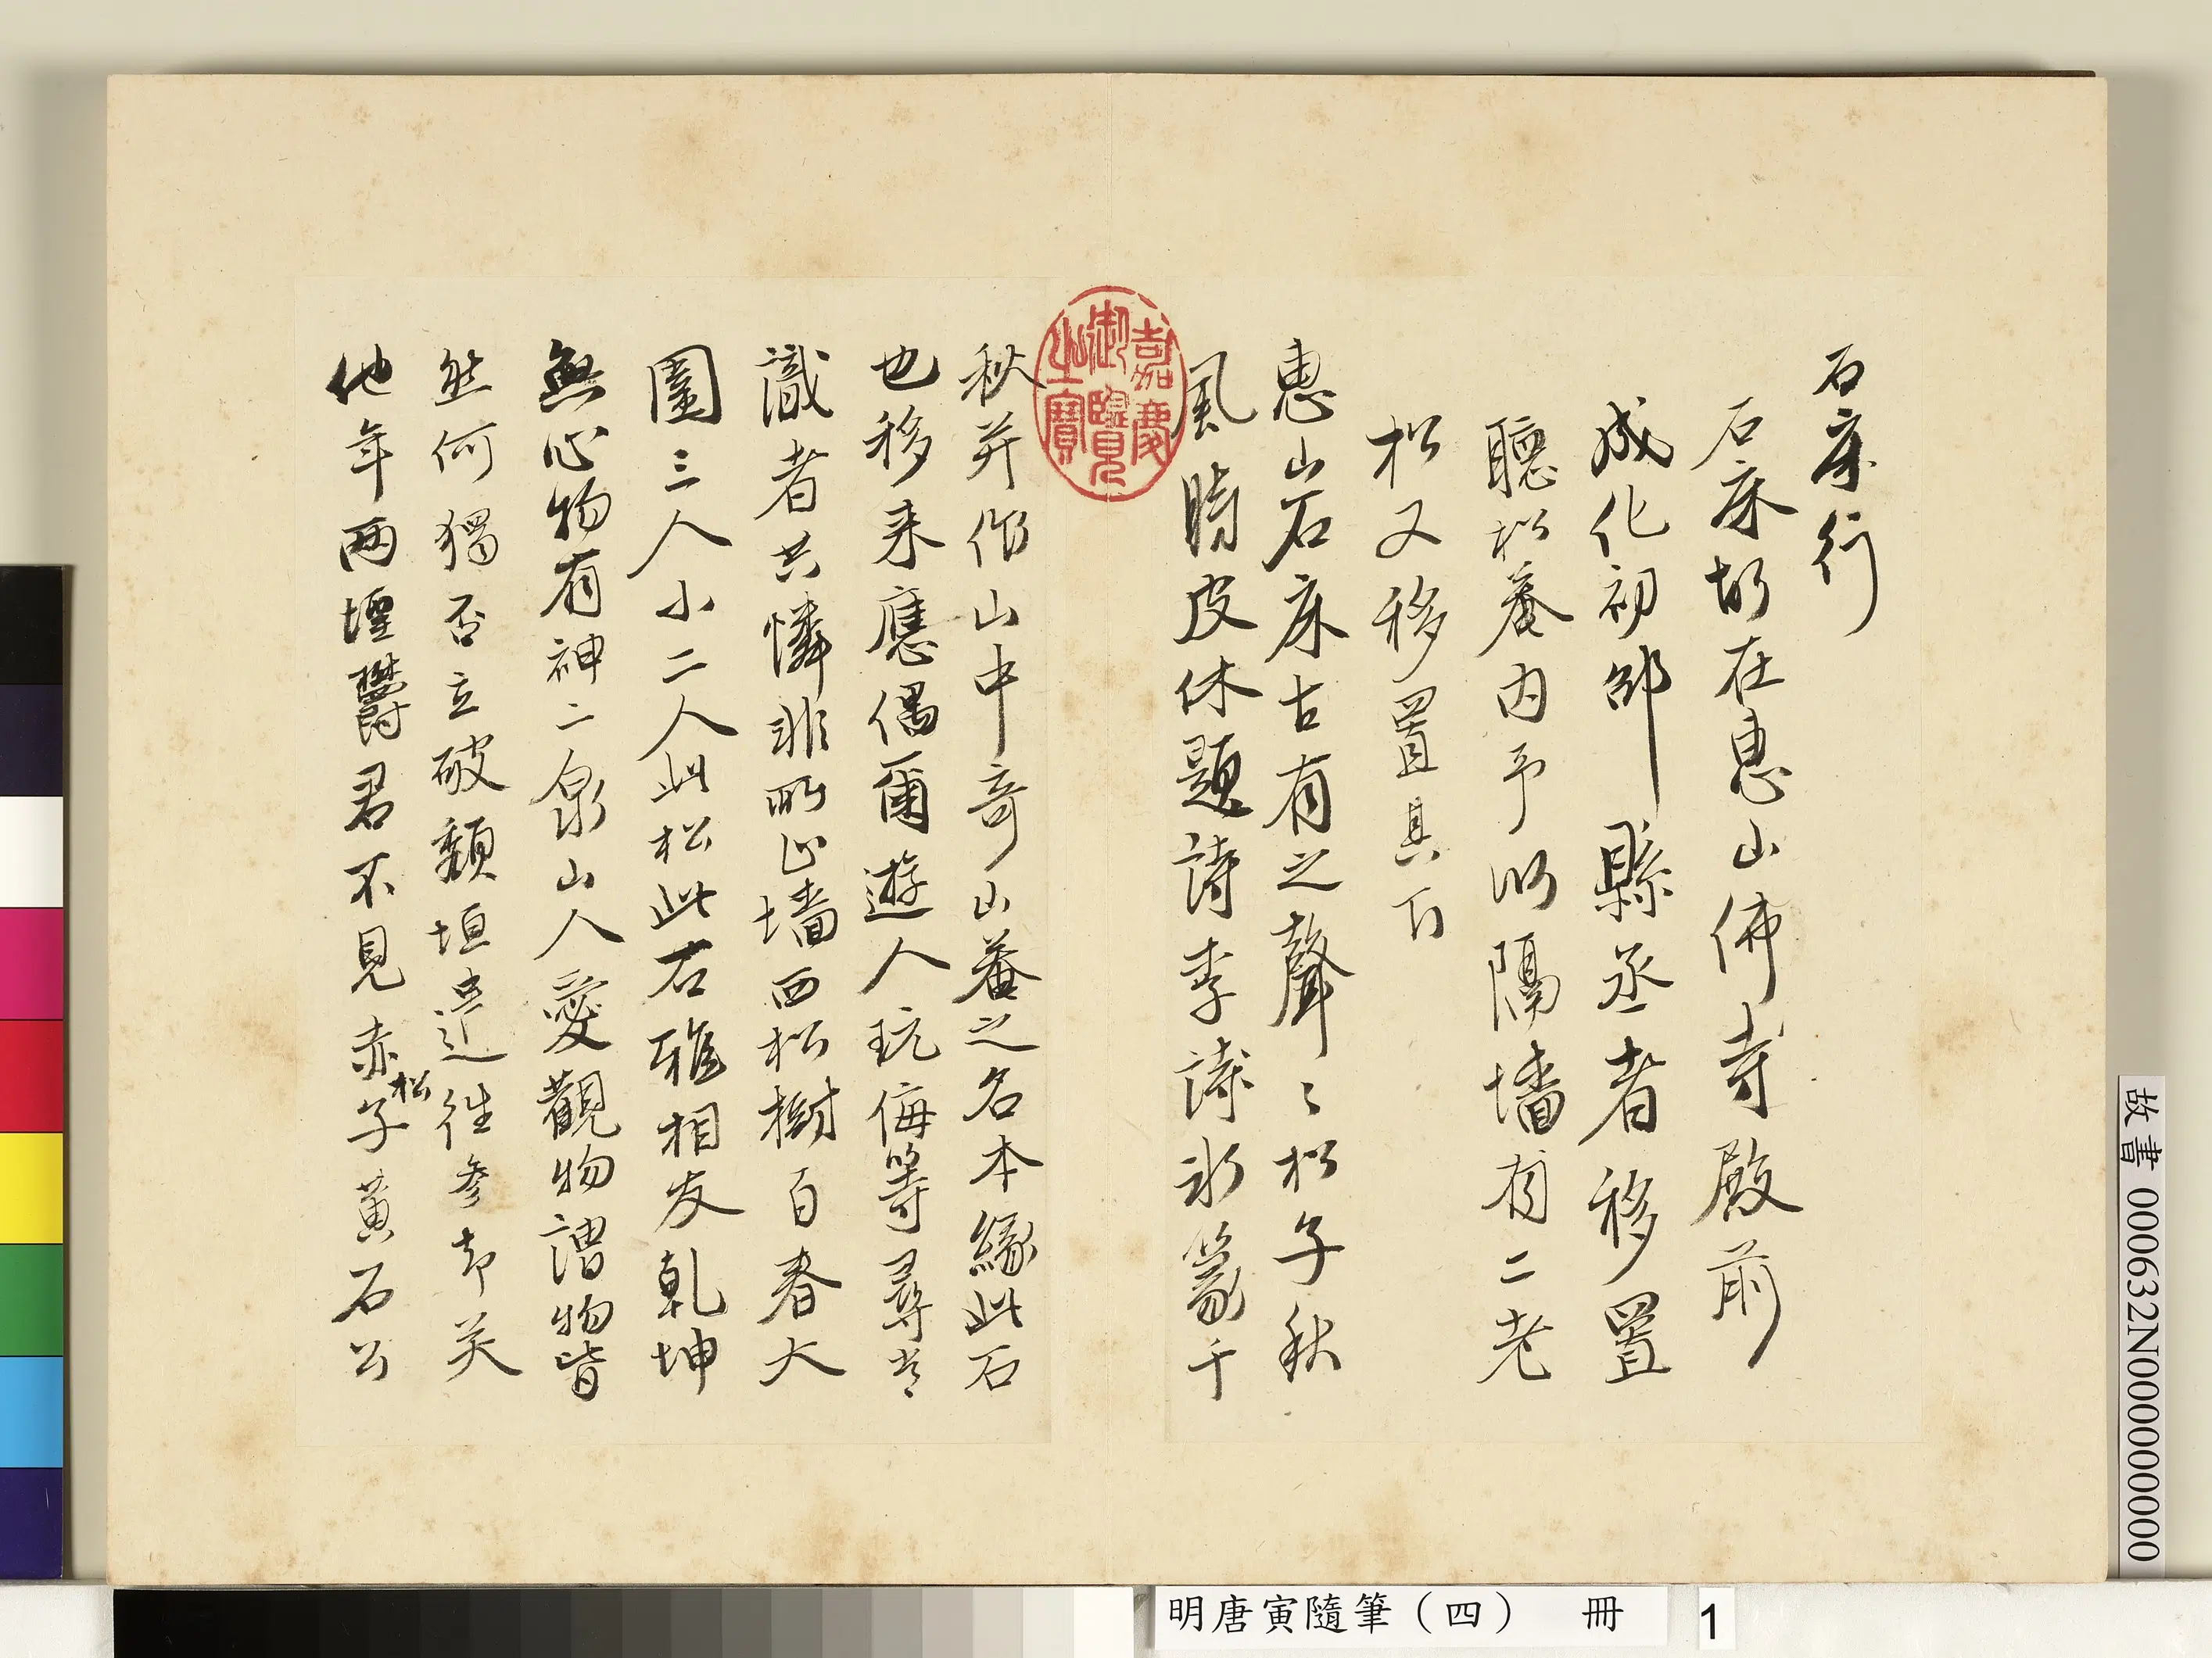 石床行
石床舊在惠山佛寺殿前
成化初邵縣丞者移置
聽松菴内予以隔墻有二老
松又移置其下
惠山石床古有之聲〻松子秋
風時皮休題詩李詩冰篆千
秋并作山中奇山菴之名本緣此石
也移来應偶爾遊人玩侮等尋常
識者共憐非所止墻西松樹百春大
圍三人小二人此松此石雅相友乾坤
無心物有神二泉山人愛觀物謂物皆
然何獨否立破頽垣坐迎往参却笑
他年兩堙鬱君不見赤松子黄石公
嘉慶御覽之寶
故書 000632N000000000
明唐寅隨筆（四） 冊 1